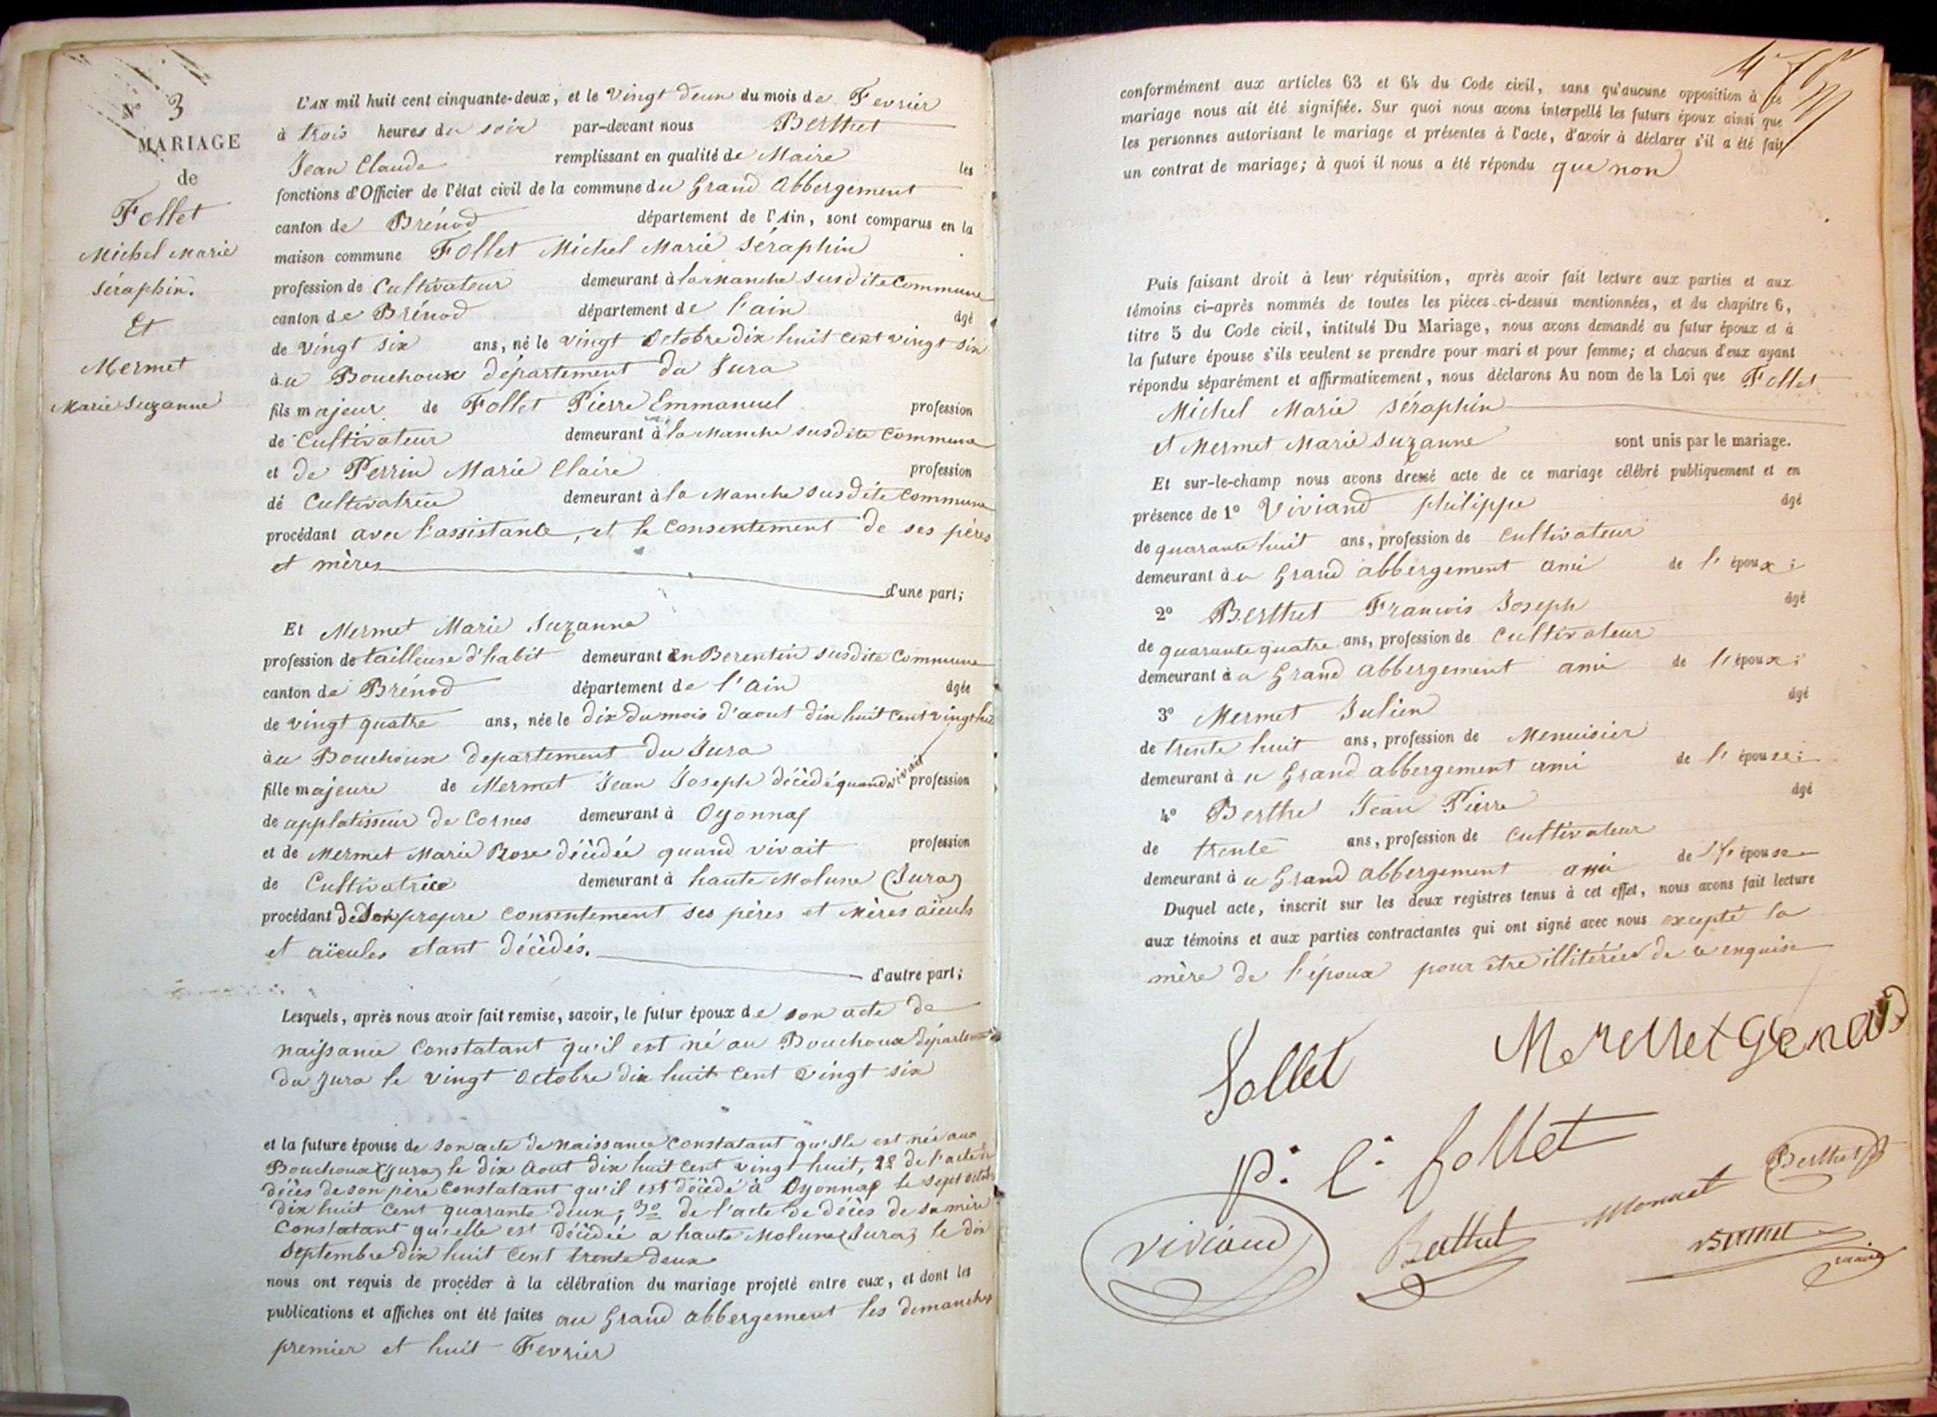 N° 3
MARIAGE
de
Follet
Michel Marie
Séraphin.
Et
Mermet
Marie Suzanne
L'AN mil huit cent cinquante-deux, et le vingt deux du mois de Fevrier
à trois heures du soir par-devant nous Berthet
Jean Claude remplissant en qualité de Maire les
fonctions d'Officier de l'état civil de la commune du Grand Abbergement
canton de Brénod département de l'Ain, sont comparus en la
maison commune Follet Michel Marie Séraphin
profession de Cultivateur demeurant à la Manche susdite Commune
canton de Brénod département de l'ain âgé
de vingt six ans, né le vingt Octobre dix huit cent vingt six
àu Bouchoux département du Jura
fils majeur de Follet Pierre Emmanuel profession
de Cultivateur demeurant à la Manche susdite Commune
et de Perrin Marie Claire profession
de Cultivatrice demeurant à la Manche susdite Commune
procédant avec l'assistance, et le consentement de ses pères
et mères d'une part;
Et Mermet Marie Suzanne
profession de tailleuse d'habit demeurant en Berentin susdite Commune
canton de Brénod département de l'ain âgée
de vingt quatre ans, née le dix du mois d'aout dix huit cent vingt huit
àu Bouchoux departement du Jura
fille majeure de Mermet Jean Joseph décédé quand vivait profession
de applatisseur de Cornes demeurant à Oyonnax
et de Mermet Marie Rose décédée quand vivait profession
de Cultivatrice demeurant à haute Molune (Jura)
procédant de son propre consentement ses pères et Mères aïeuls
et aïeules etant décédés. d'autre part;
Lesquels, après nous avoir fait remise, savoir, le futur époux de son acte de
naissance Constatant qu'il est né au Bouchoux département
du Jura le vingt Octobre dix huit cent vingt six
et la future épouse de son acte de naissance constatant qu'Ile est née aux
Bouchoux (Jura) le dix Aout dix huit cent vingt huit, 2º de l'acte de
décès de son père constatant qu'il est décédé à Oyonnax le sept octobre
dix huit cent quarante deux; 3º de l'acte de décès de sa mère
Constatant qu'elle est décédée a haute Molune (Jura) le dix
Septembre dix huit cent trente deux
nous ont requis de procéder à la célébration du mariage projeté entre eux, et dont les
publications et affiches ont été faites au Grand abbergement les dimanches
premier et huit Fevrier
conformément aux articles 63 et 64 du Code civil, sans qu'aucune opposition à ce
mariage nous ait été signifiée. Sur quoi nous avons interpellé les futurs époux ainsi que
les personnes autorisant le mariage et présentes à l'acte, d'avoir à déclarer s'il a été fait
un contrat de mariage; à quoi il nous a été répondu que non
Puis faisant droit à leur réquisition, après avoir fait lecture aux parties et aux
témoins ci-après nommés de toutes les pièces ci-dessus mentionnées, et du chapitre 6,
titre 5 du Code civil, intitulé Du Mariage, nous avons demandé au futur époux et à
la future épouse s'ils veulent se prendre pour mari et pour femme; et chacun d'eux ayant
répondu séparément et affirmativement, nous déclarons Au nom de la Loi que Follet
Michel Marie Séraphin
et Mermet Marie Suzanne sont unis par le mariage.
Et sur-le-champ nous avons dressé acte de ce mariage célébré publiquement et en
présence de 1º Viviand philippe âgé
de quarante huit ans, profession de Cultivateur
demeurant à u Grand abbergement ami de l'époux;
2º Berthet Francois Joseph âgé
de quarante quatre ans, profession de Cultivateur
demeurant à u Grand abbergement ami de l'époux;
3º Mermet Julien âgé
de trente huit ans, profession de Menuisier
demeurant à u Grand abbergement ami de l'épouse;
4º Berthe Jean Pierre âgé
de trente ans, profession de Cultivateur
demeurant à u Grand abbergement ami de l'épouse
Duquel acte, inscrit sur les deux registres tenus à cet effet, nous avons fait lecture
aux témoins et aux parties contractantes qui ont signé avec nous excepté la
mère de l'époux pour être illitérée de ce enquise
follet
p. e. follet
viviand
Berthet
Mermet
Berthet
Berthet
maire